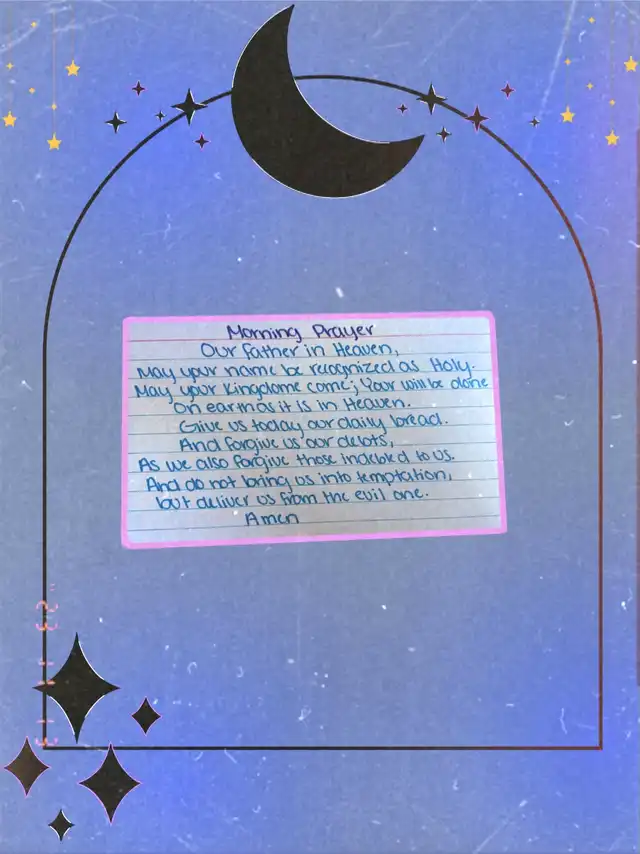 Morning Prayer
Our Father in Heaven,
May your name be recognized as Holy.
May your Kingdome come; Your will be done
on earth as it is in Heaven.
Give us today our daily bread.
And forgive us our debts,
As we also forgive those indebted to us.
And do not bring us into temptation,
but deliver us from the evil one.
Amen